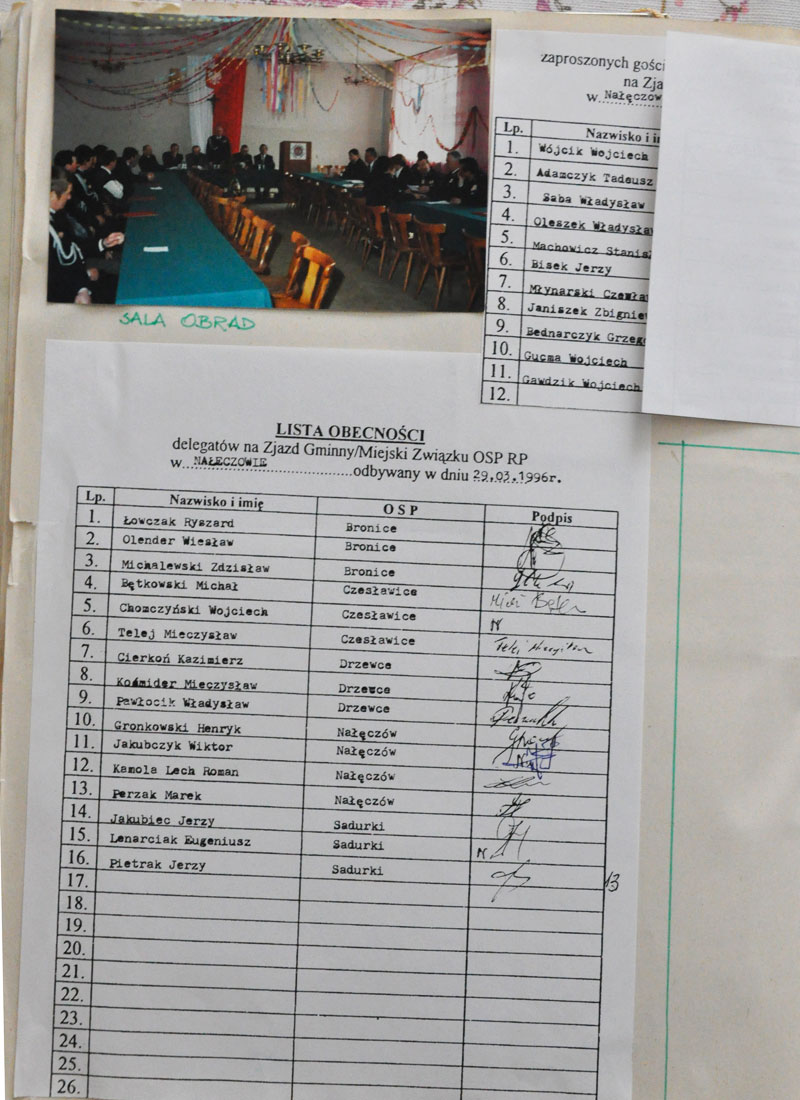 SALA OBRAD
zaproszonych gości
na Zja
w Nałęczow
Lp. Nazwisko i im
1. Wójcik Wojciech
2. Adamczyk Tadeusz
3. Saba Władysław
4. Oleszek Władysław
5. Machowicz Stanis
6. Bisek Jerzy
7. Młynarski Czesła
8. Janiszek Zbigniew
9. Bednarczyk Grzego
10. Gucma Wojciech
11. Gawdzik Wojciech
12.
LISTA OBECNOŚCI
delegatów na Zjazd Gminny/Miejski Związku OSP RP
w NAŁĘCZOWIE odbywany w dniu 29.03.1996r.
Lp. Nazwisko i imię OSP Podpis
1. Łowczak Ryszard Bronice
2. Olender Wiesław Bronice
3. Michalewski Zdzisław Bronice
4. Bętkowski Michał Czesławice
5. Chomczyński Wojciech Czesławice N
6. Telej Mieczysław Czesławice
7. Cierkoń Kazimierz Drzewce
8. Koźmider Mieczysław Drzewce
9. Pawłocik Władysław Drzewce
10. Gronkowski Henryk Nałęczów
11. Jakubczyk Wiktor Nałęczów
12. Kamola Lech Roman Nałęczów
13. Perzak Marek Nałęczów
14. Jakubiec Jerzy Sadurki
15. Lenarciak Eugeniusz Sadurki N
16. Pietrak Jerzy Sadurki
17. 13
18.
19.
20.
21.
22.
23.
24.
25.
26.